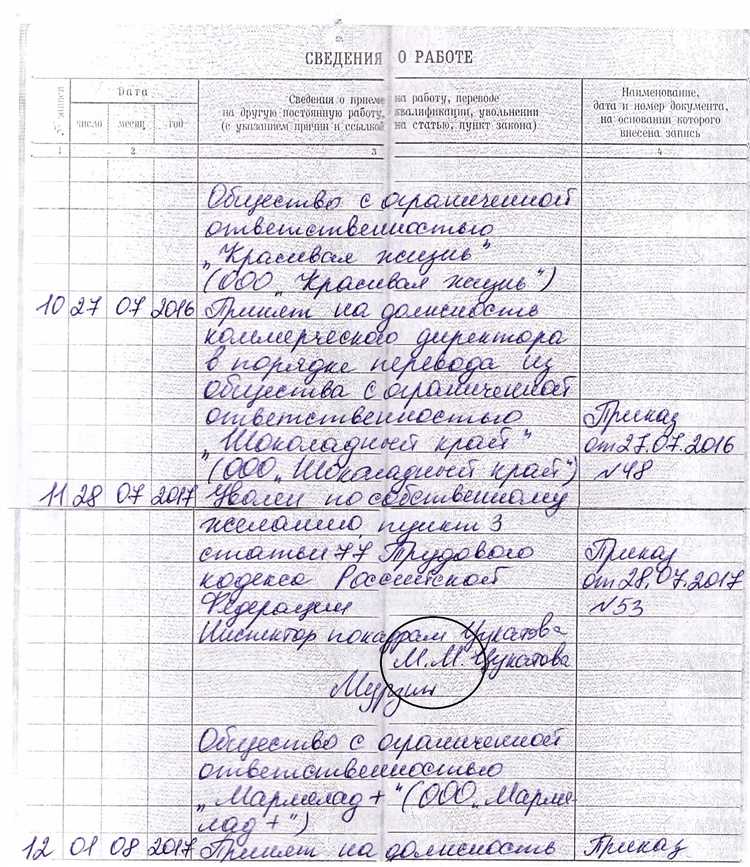 СВЕДЕНИЯ О РАБОТЕ
№ записи
Дата
число месяц год
Сведения о приеме на работу, переводе
на другую постоянную работу, квалификации, увольнении
(с указанием причин и ссылкой на статью, пункт закона)
Наименование,
дата и номер документа,
на основании которого
внесена запись
1 2 3 4
Общество с ограниченной
ответственностью
„Красивая жизнь"
(ООО „Красивая жизнь")
10 27 07 2016 Принят на должность
коммерческого директора
в порядке перевода из
общества с ограниченной
ответственностью Приказ
„Шоколадный край" от 27.07.2016
(ООО „Шоколадный край") №48
11 28 07 2017 Уволен по собственному
желанию, пункт 3
статьи 77 Трудового Приказ
кодекса Российской от 28.07.2017
Федерации №53
Инспектор по кадрам Цукатова
М.М. Цукатова
Мурзин
Общество с ограниченной
ответственностью
„Мармелад+" (ООО „Марме-
лад+")
12 01 08 2017 Принят на должность Приказ